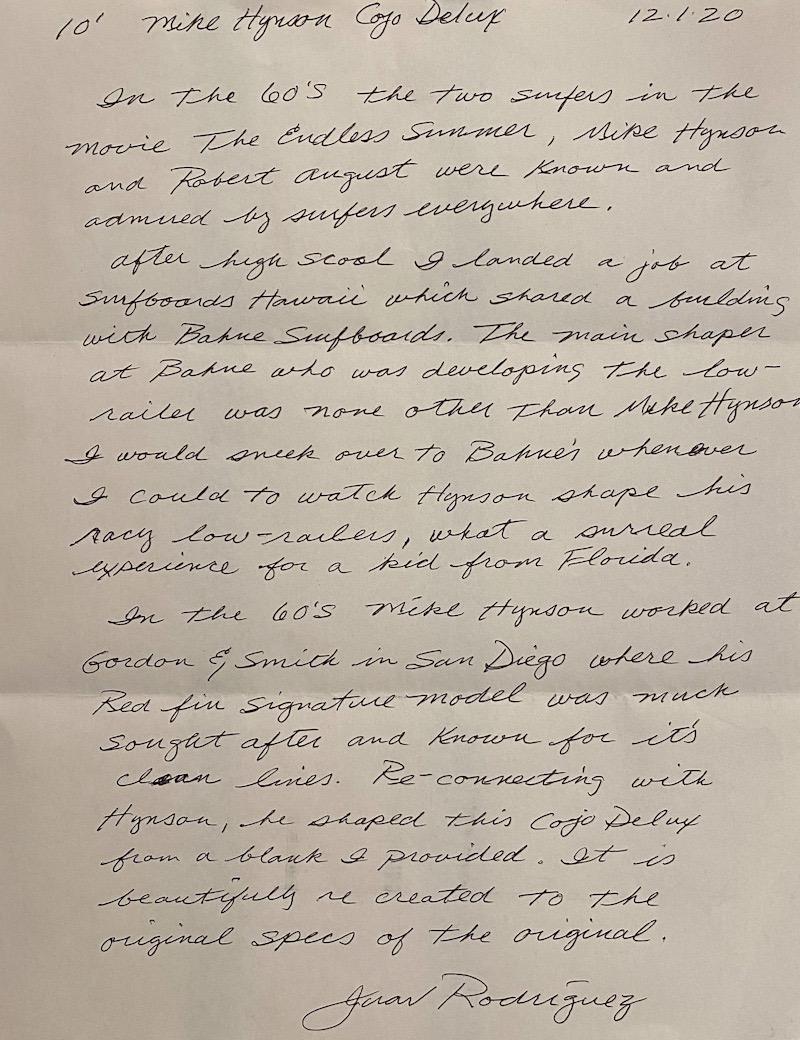 10' Mike Hynson Cojo Delux 12.1.20
In the 60's the two surfers in the
movie The Endless Summer, Mike Hynson
and Robert August were known and
admired by surfers everywhere.
After high scool I landed a job at
Surfboards Hawaii which shared a building
with Bahne Surfboards. The main shaper
at Bahne who was developing the low-
railer was none other than Mike Hynson
I would sneek over to Bahne's whenever
I could to watch Hynson shape his
racy low-railers, what a surreal
experience for a kid from Florida.
In the 60's Mike Hynson worked at
Gordon & Smith in San Diego where his
Red fin signature model was much
sought after and known for it's
clean lines. Re-connecting with
Hynson, he shaped this Cojo Delux
from a blank I provided. It is
beautifully re created to the
original specs of the original.
Juan Rodríguez